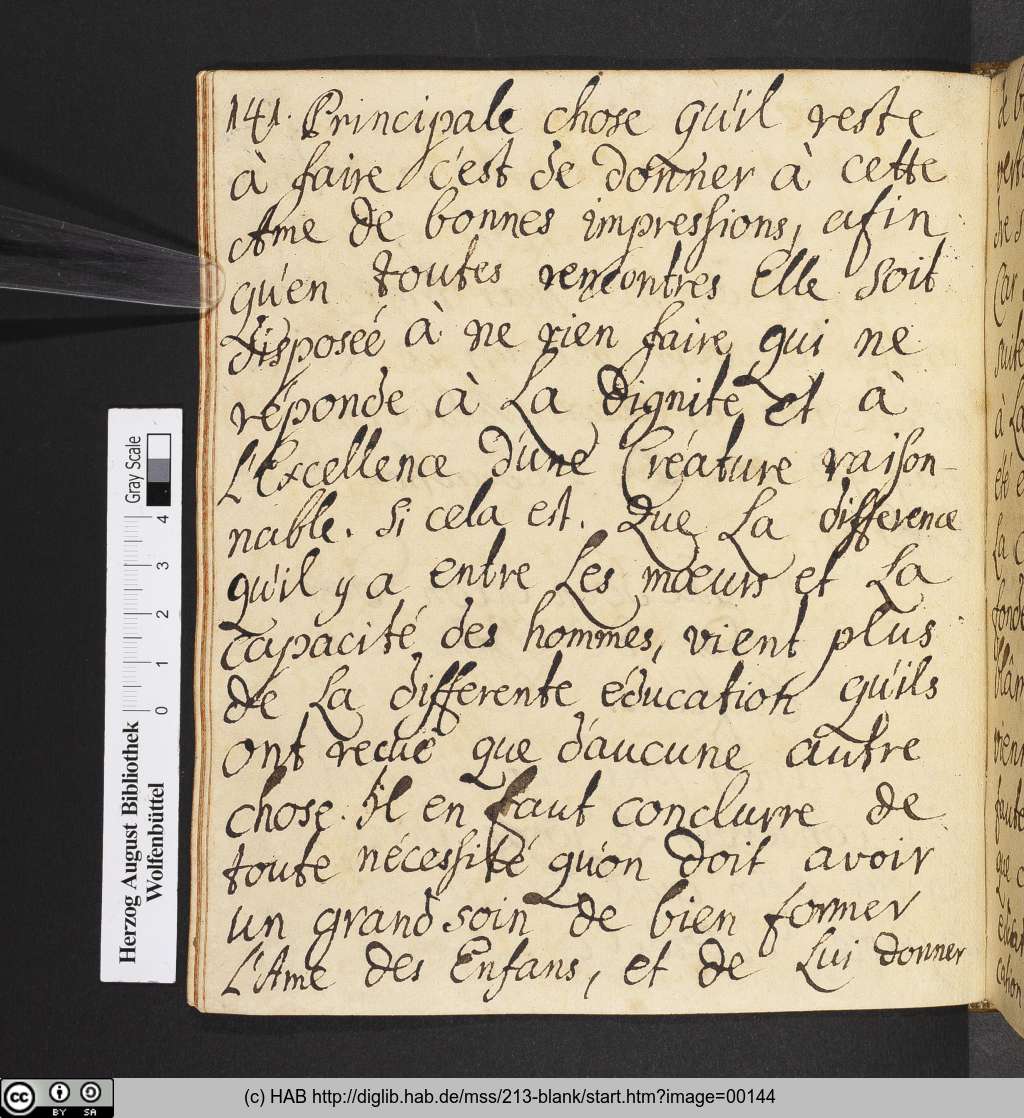 141. Principale chose qu'il reste
à faire c'est de donner à cette
Ame de bonnes impressions, afin
qu'en toutes rencontres Elle soit
disposeé à ne rien faire qui ne
réponde à La dignité et à
L'Excellence d'une Créature raison-
nable. Si cela est. Que La difference
qu'il y a entre Les mœurs et La
capacité des hommes, vient plus
de La differente éducation qu'ils
ont recue que d'aucune autre
chose. Il en faut conclurre de
toute nécessité qu'on doit avoir
un grand soin de bien former
L'Ame des Enfans, et de Lui donner
Gray Scale
4
3
2
1
0
Herzog August Bibliothek
Wolfenbüttel
cc BY SA
(c) HAB http://diglib.hab.de/mss/213-blank/start.htm?image=00144